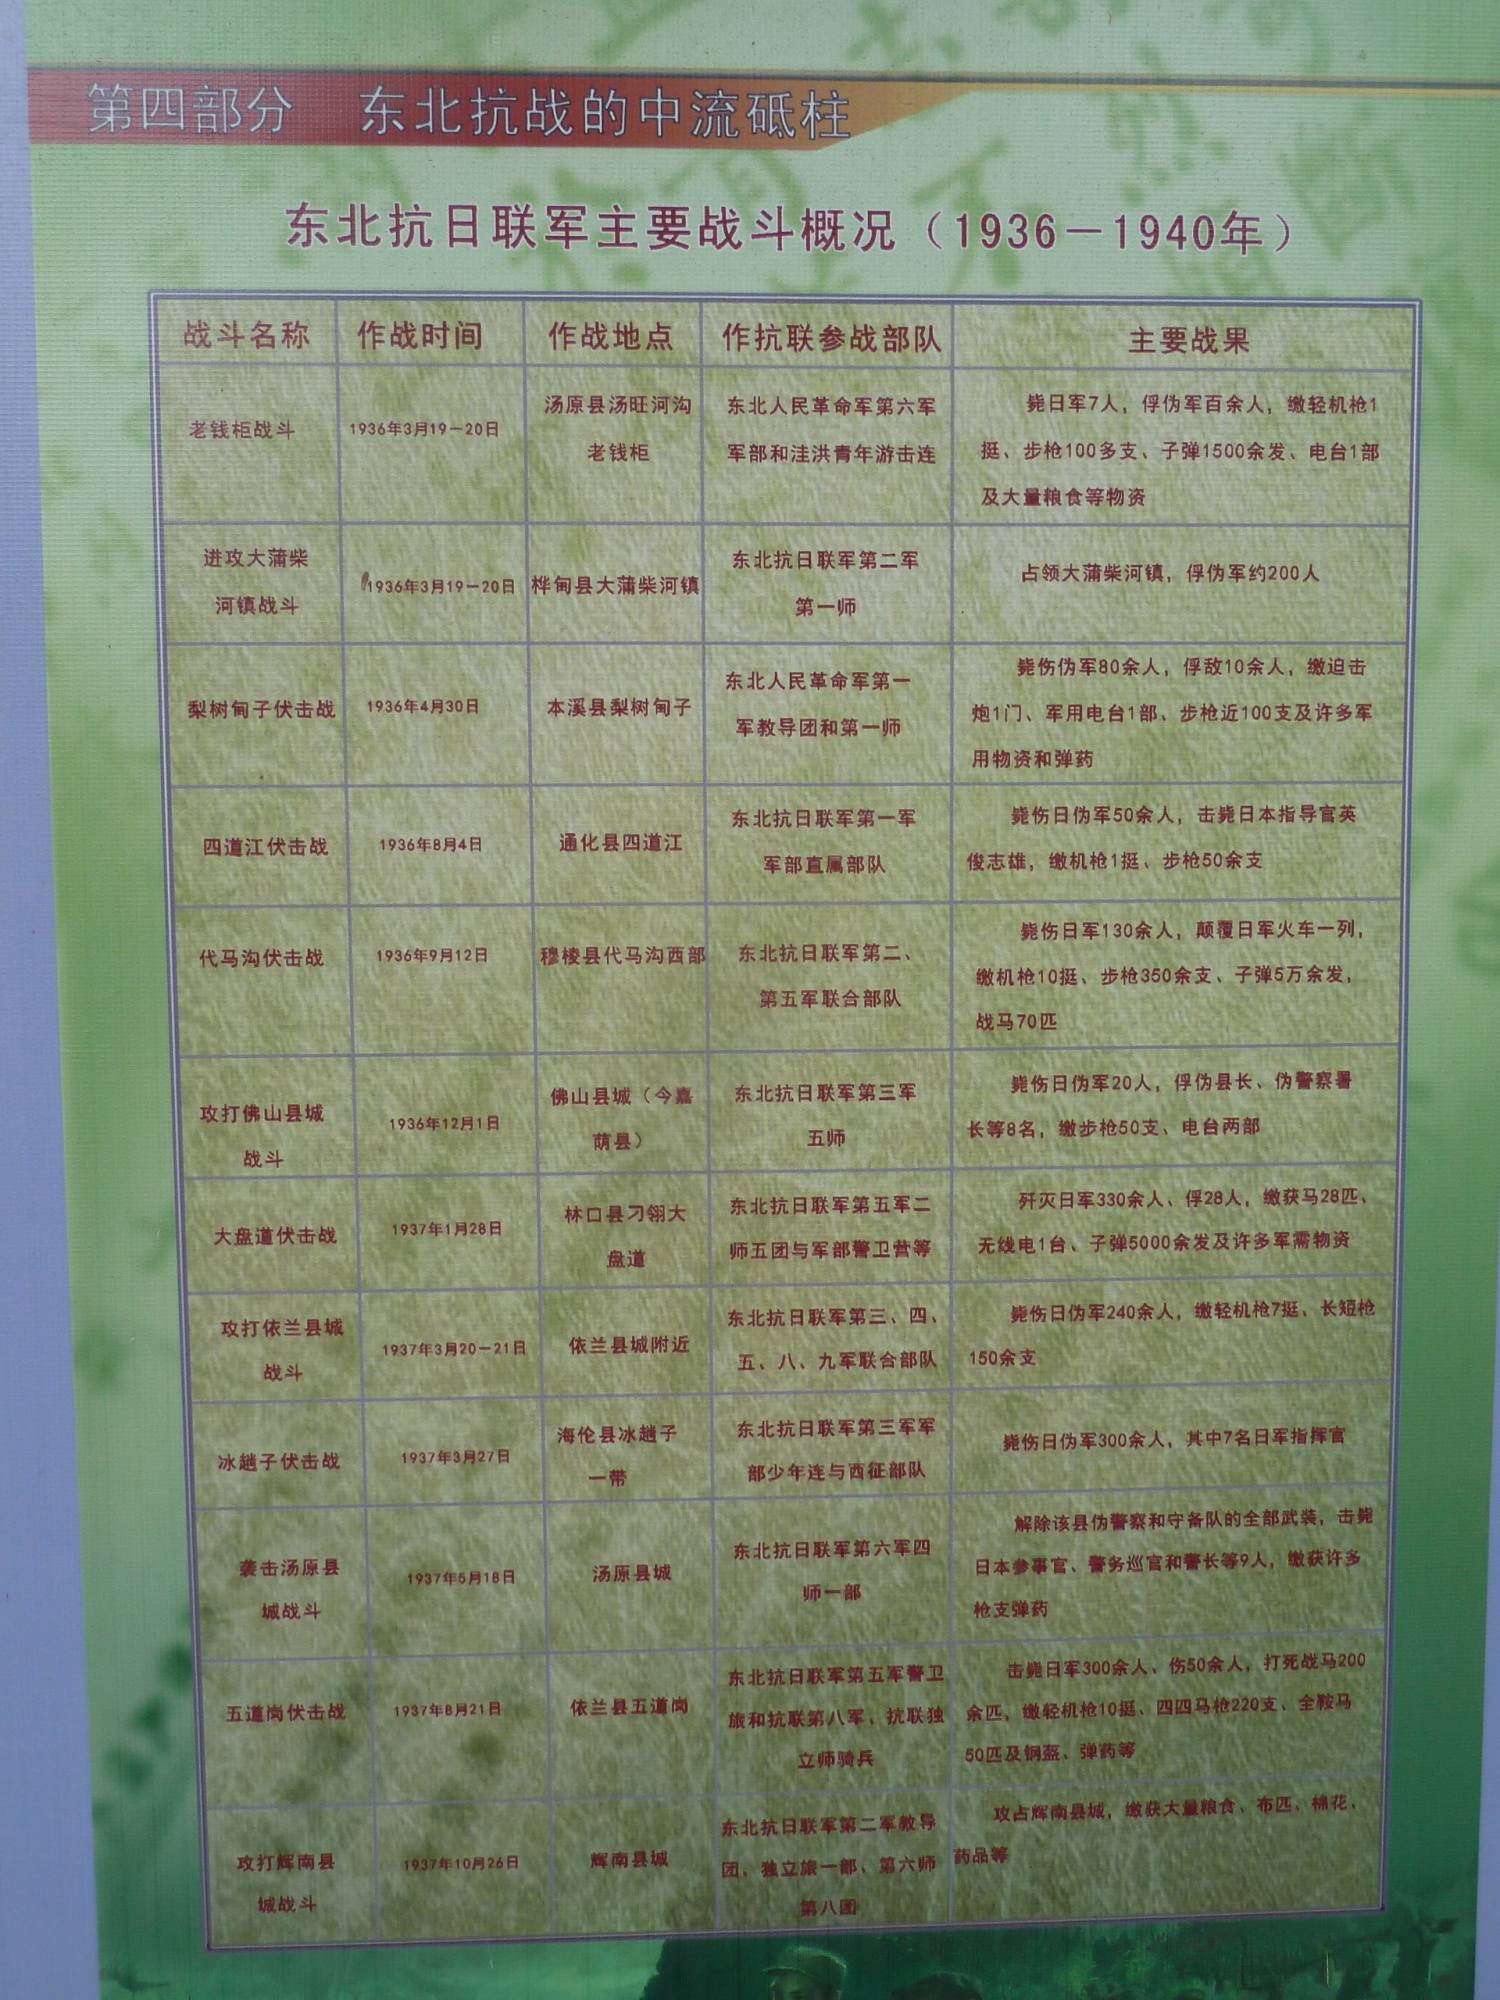 第四部分 东北抗战的中流砥柱
东北抗日联军主要战斗概况（1936－1940年）
战斗名称 作战时间 作战地点 作抗联参战部队 主要战果
老钱柜战斗
1936年3月19－20日
汤原县汤旺河沟
老钱柜
东北人民革命军第六军
军部和洼洪青年游击连
毙日军7人，俘伪军百余人，缴轻机枪1
挺、步枪100多支、子弹1500余发、电台1部
及大量粮食等物资
进攻大蒲柴
河镇战斗
1936年3月19－20日
桦甸县大蒲柴河镇
东北抗日联军第二军
第一师
占领大蒲柴河镇，俘伪军约200人
梨树甸子伏击战
1936年4月30日
本溪县梨树甸子
东北人民革命军第一
军教导团和第一师
毙伤伪军80余人，俘敌10余人，缴迫击
炮1门、军用电台1部、步枪近100支及许多军
用物资和弹药
四道江伏击战
1936年8月4日
通化县四道江
东北抗日联军第一军
军部直属部队
毙伤日伪军50余人，击毙日本指导官英
俊志雄，缴机枪1挺、步枪50余支
代马沟伏击战
1936年9月12日
穆棱县代马沟西部
东北抗日联军第二、
第五军联合部队
毙伤日军130余人，颠覆日军火车一列，
缴机枪10挺、步枪350余支、子弹5万余发，
战马70匹
攻打佛山县城
战斗
1936年12月1日
佛山县城（今嘉
荫县）
东北抗日联军第三军
五师
毙伤日伪军20人，俘伪县长、伪警察署
长等8名，缴步枪50支、电台两部
大盘道伏击战
1937年1月28日
林口县刁翎大
盘道
东北抗日联军第五军二
师五团与军部警卫营等
歼灭日军330余人、俘28人，缴获马28匹、
无线电1台、子弹5000余发及许多军需物资
攻打依兰县城
战斗
1937年3月20－21日
依兰县城附近
东北抗日联军第三、四、
五、八、九军联合部队
毙伤日伪军240余人，缴轻机枪7挺、长短枪
150余支
冰趟子伏击战
1937年3月27日
海伦县冰趟子
一带
东北抗日联军第三军军
部少年连与西征部队
毙伤日伪军300余人，其中7名日军指挥官
袭击汤原县
城战斗
1937年5月18日
汤原县城
东北抗日联军第六军四
师一部
解除该县伪警察和守备队的全部武装，击毙
日本参事官、警务巡官和警长等9人，缴获许多
枪支弹药
五道岗伏击战
1937年8月21日
依兰县五道岗
东北抗日联军第五军警卫
旅和抗联第八军、抗联独
立师骑兵
击毙日军300余人、伤50余人，打死战马200
余匹，缴轻机枪10挺、四四马枪220支、全鞍马
50匹及钢盔、弹药等
攻打辉南县
城战斗
1937年10月26日
辉南县城
东北抗日联军第二军教导
团、独立旅一部、第六师
第八团
攻占辉南县城，缴获大量粮食、布匹、棉花、
药品等